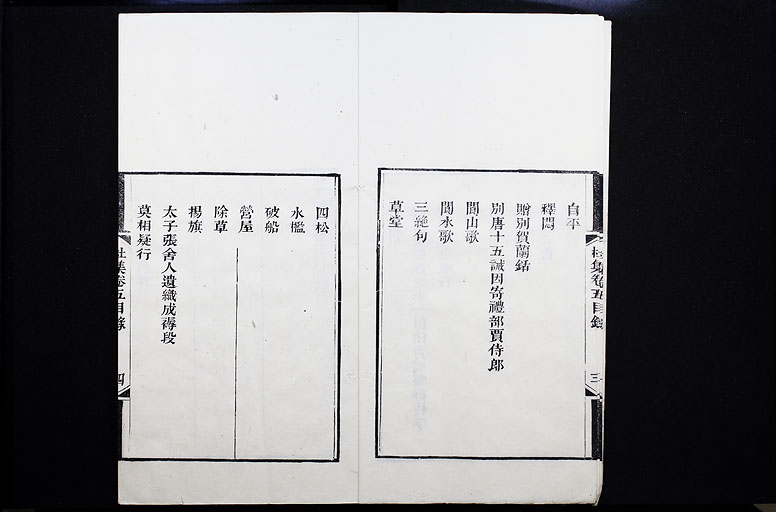 杜集卷五目錄
三
自平
釋悶
贈別賀蘭銛
別唐十五誡因寄禮部賈侍郎
閬山歌
閬水歌
三絕句
草堂
四松
水檻
破船
營屋
除草
揚旗
太子張舍人遺織成褥段
莫相疑行
杜集卷五目錄
四